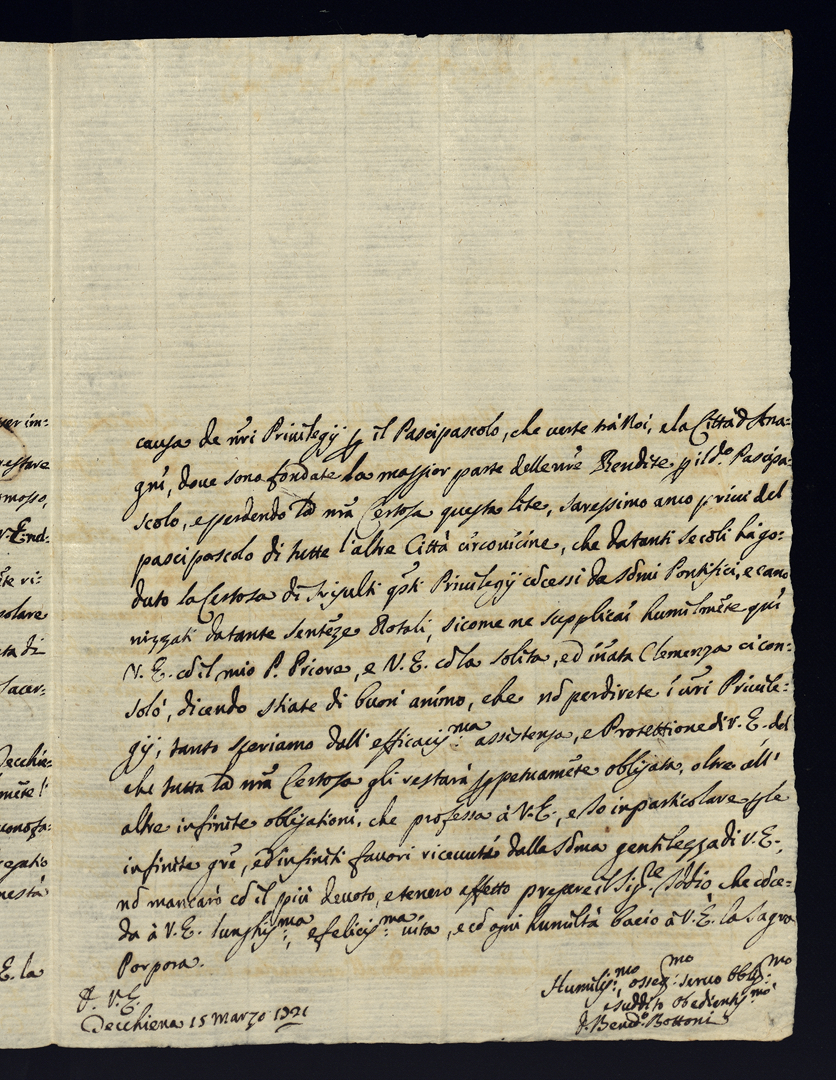 causa de nři Privilegÿ p il Pascipascolo, che verte trà Noi, e la Città d'Ana=
gni, dove sono fondate la maggior parte delle nře Rendite p il do. Pascipa=
scolo, e perdendo la nřa Certosa questa lite, saressimo anco privi del
pascipascolo di tutte l'altre Città circonvicine, che da tanti secoli hà go=
duto la Certosa di Trisulti qsti Privilegÿ cōcessi da Sōmi Pontefici, e cano
nizzati da tante sentēze Rotali, sicome ne supplicai humilmēte qui
V. E. cō il mio P. Priore, e V. E. cō la solita, ed iñata Clemenza ci con=
solò, dicendo stiate di buon animo, che nō perdirete i vři Privile=
gÿ, tanto speriamo dall'efficacis:ma assistenza, e Protettione di V. E. del
che tutta la nřa Certosa gli restarà ppetuamēte obligata, oltre all'
altre infinite obligationi, che professa à V. E., e Io in particolare p le
infinite gře, ed infiniti favori ricevuti dalla Sōma gentilezza di V. E.,
nō mancarò cō il più devoto, e tenero affetto pregare il Sigre. Iddio che cōce=
da à V. E. lunghis:ma, e felicis:ma vita, e cō ogni humiltà bacio à V. E. la Sagra
Porpora.
D. V. E.
Tecchiena 15 Marzo 1721
Humilis:mo osseq:mo servo Oblig:mo
e suddito obedientis:mo
D. Bendo. Bottoni
ver im=
restare
V. E. nd=
ēte vi=
solare
ta di
Sacer=
Tecchie=
mēte l'
E. la